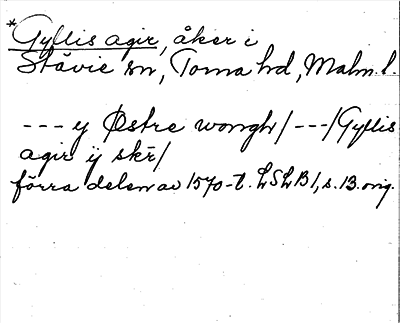 * Gyllis agir, åker i
Stävie sn, Torna hd, Malm. l.
--- y Østre wongh/ ---/ Gyllis
agir ij skr̄/
förra delen av 1570-t. LSLB 1, s. 13. orig.